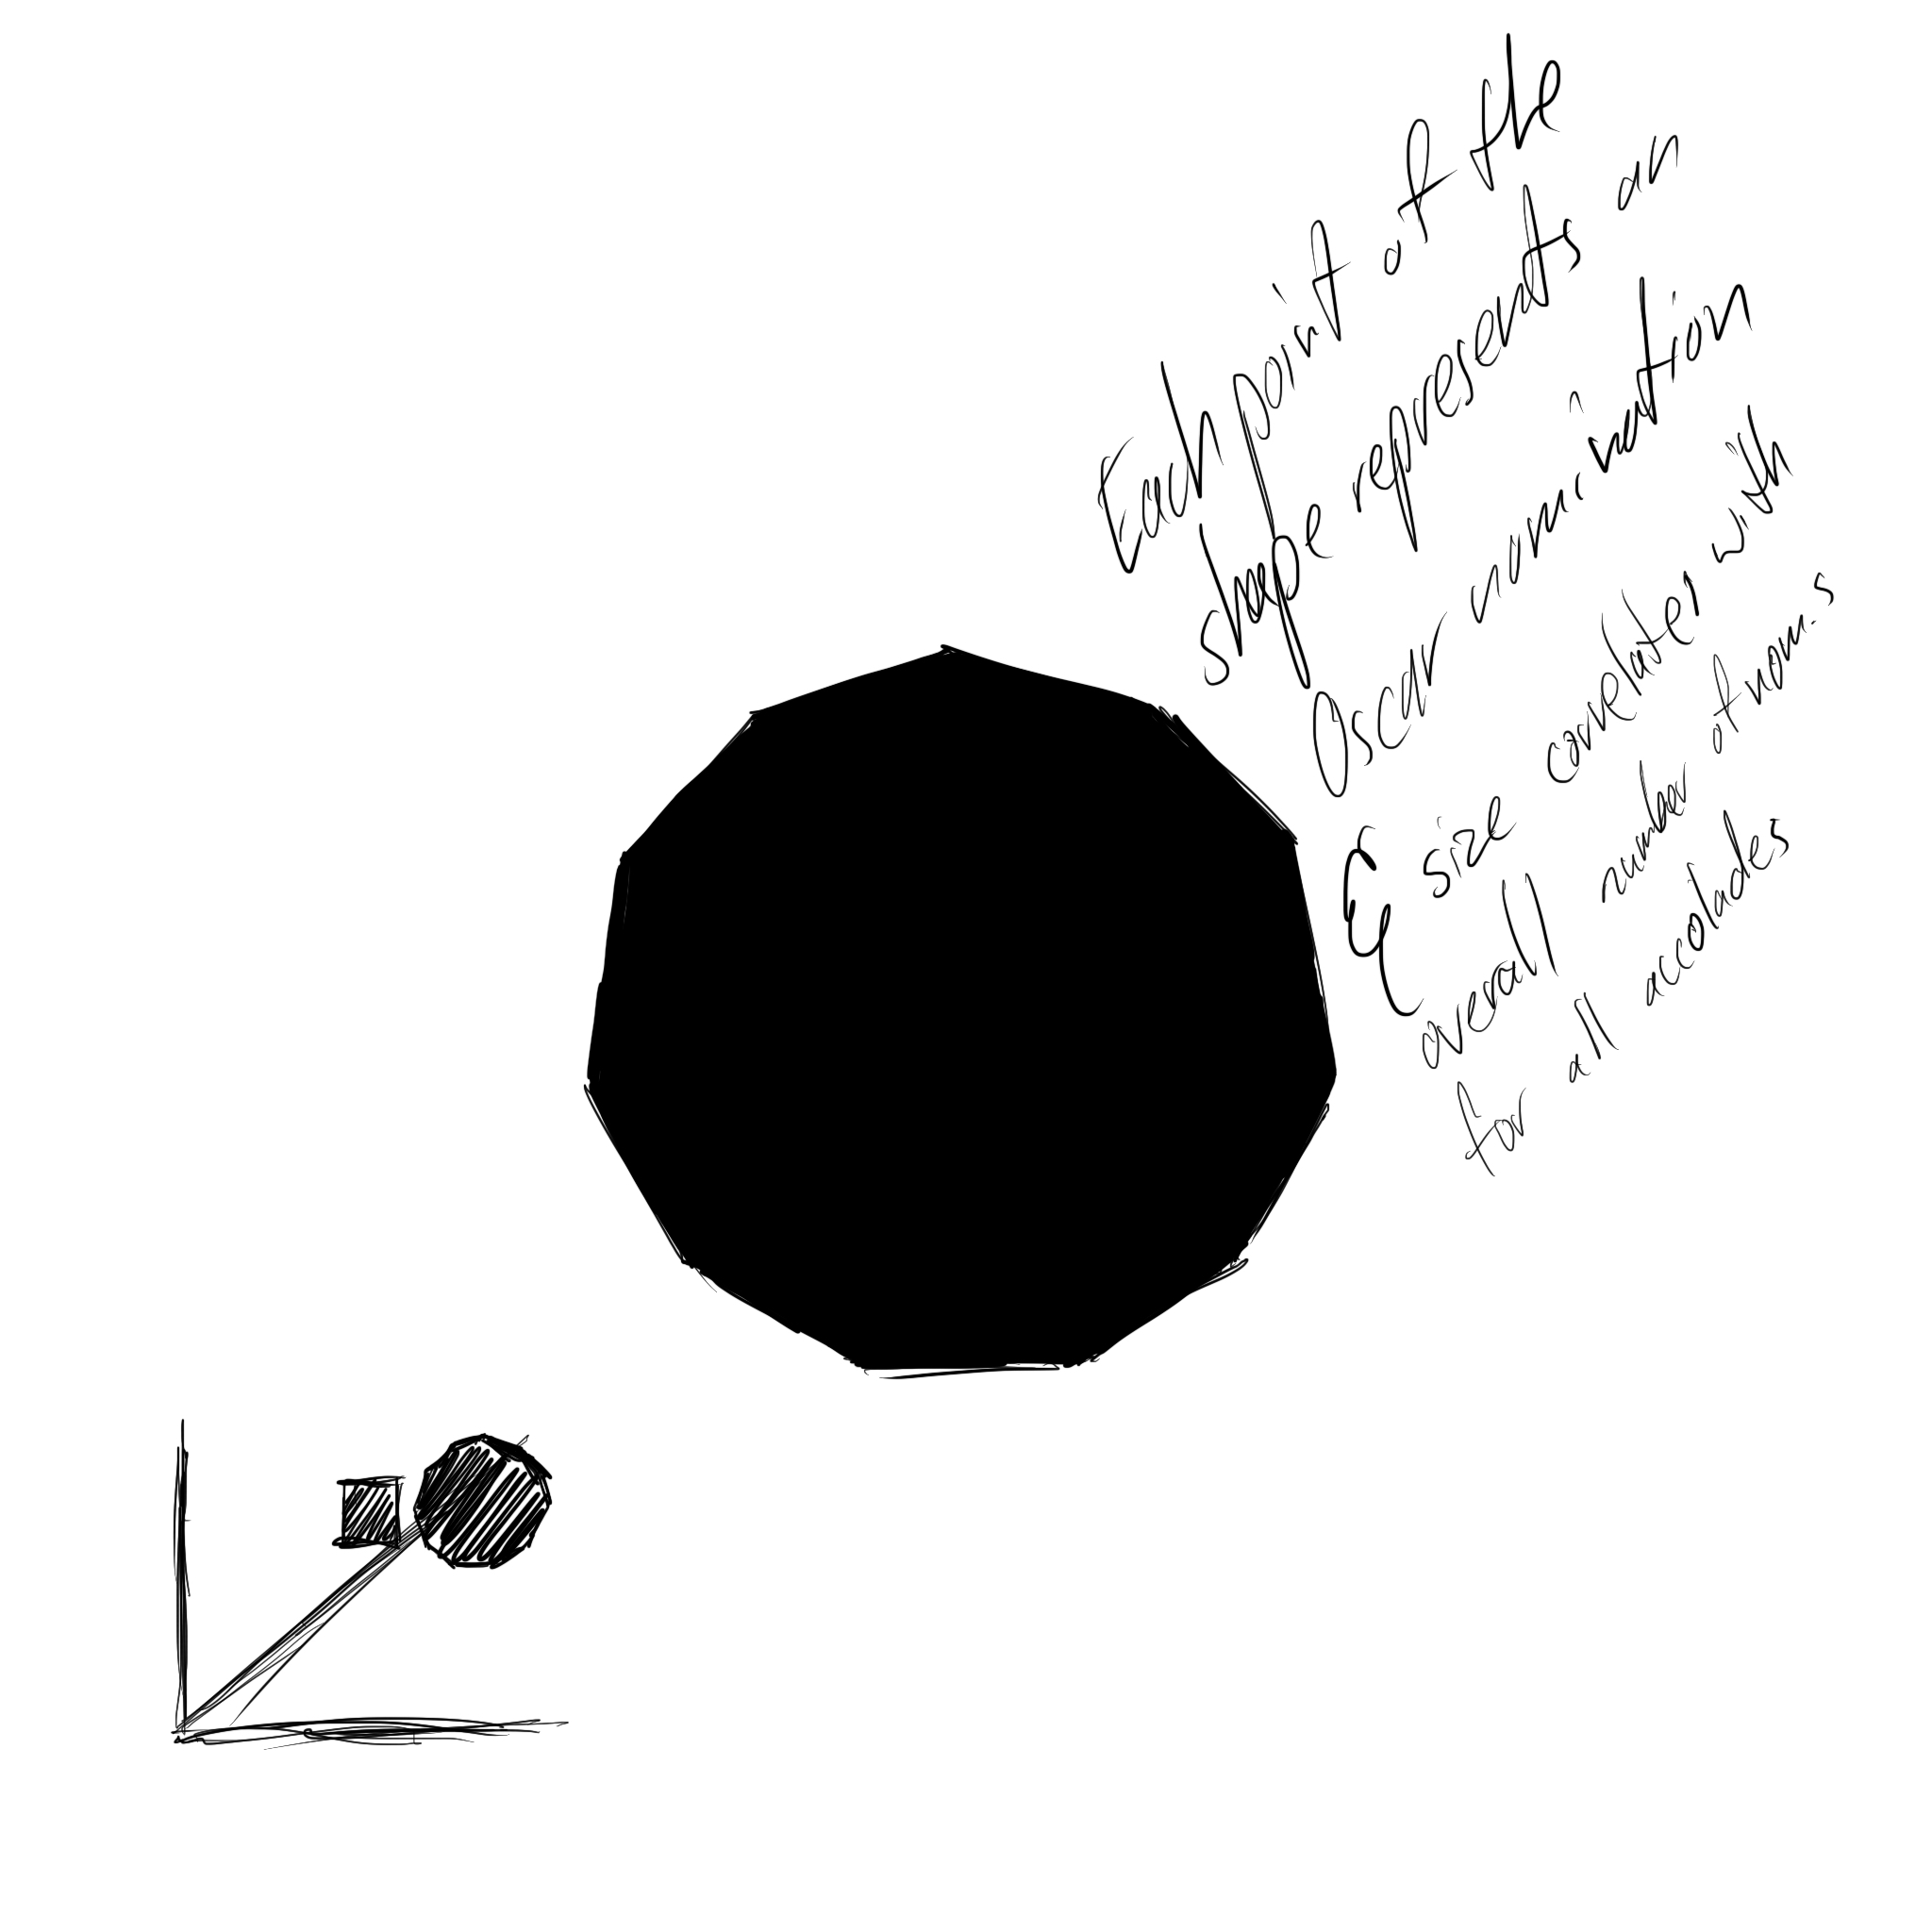 Each point of the
shape represents an
Oscar nomination
& size correlates with
overall number of noms
for all accolades